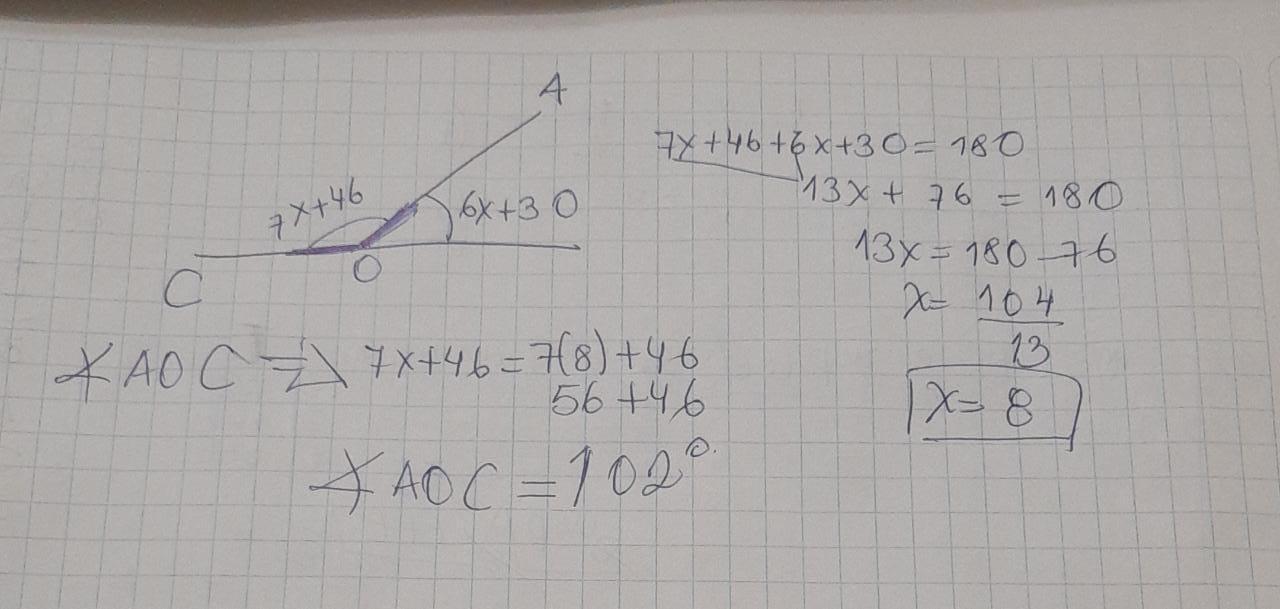 A
7x+46
6x+30
C
O
7x+46+6x+30=180
13x+ 76 = 180
13x=180-76
x= 104
13
x= 8
∡AOC ⇒ 7x+46=7(8)+46
56+46
∡AOC=102°.